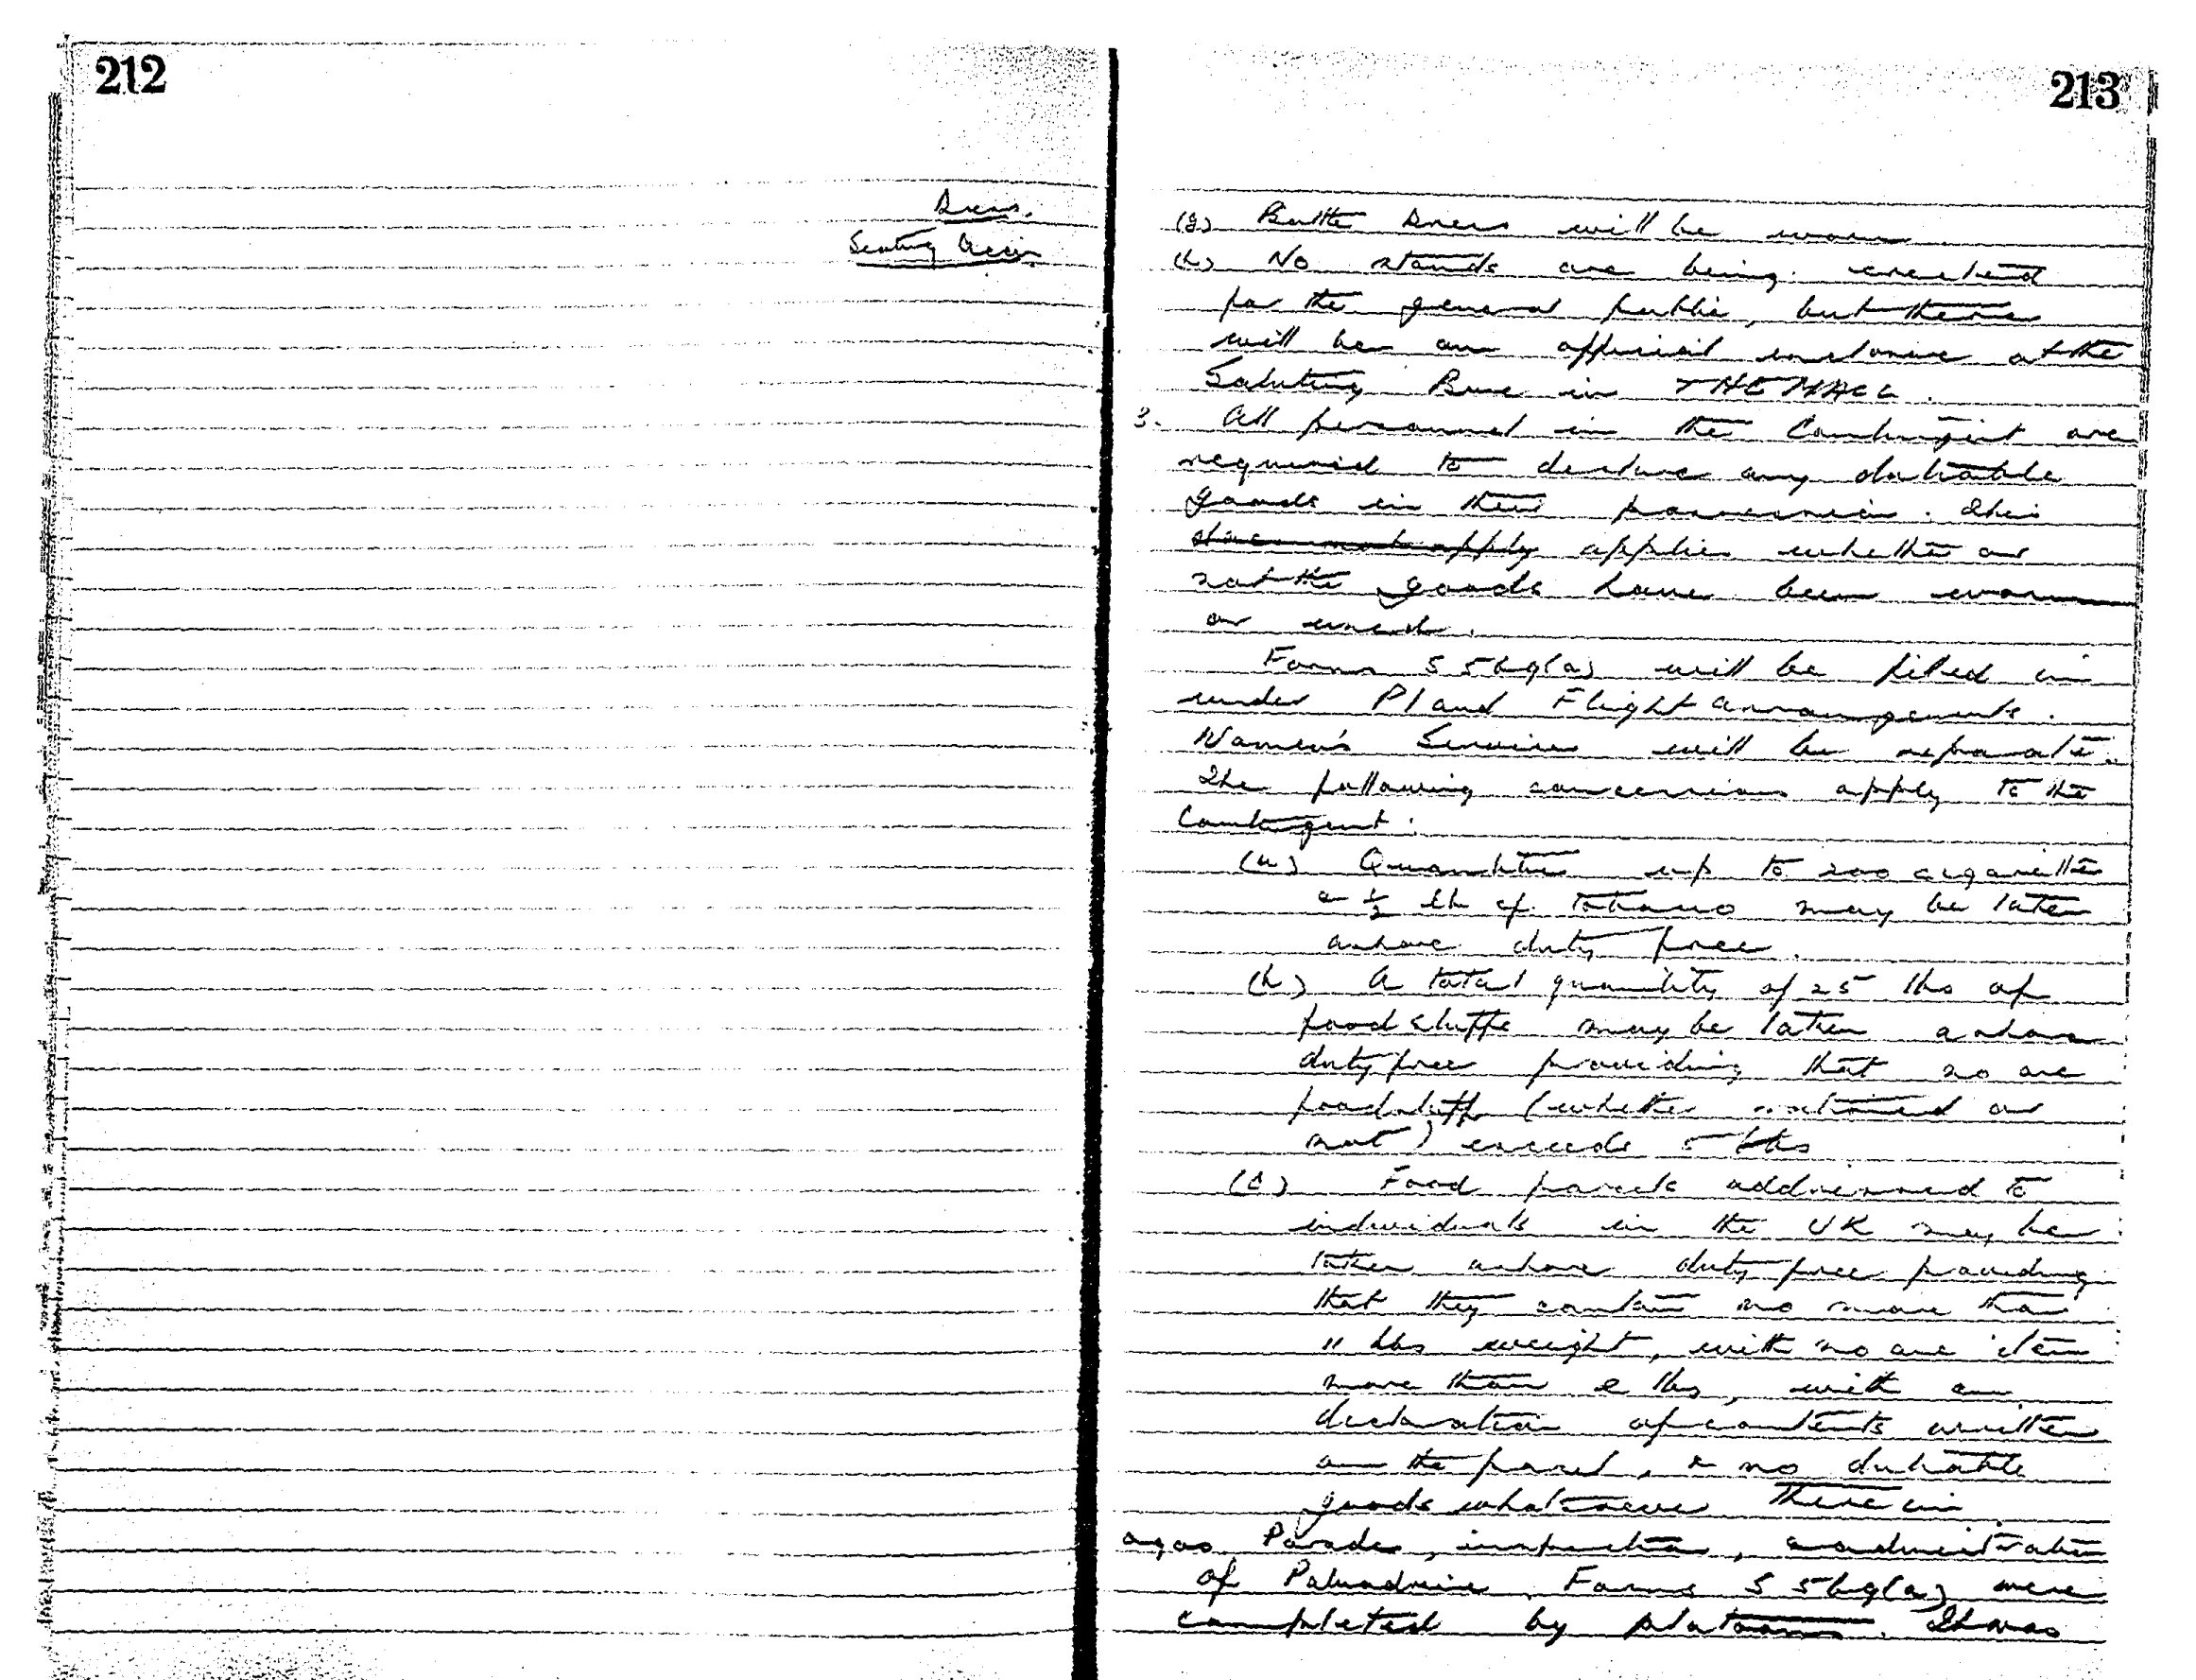 212
Dress.
Seating Accn
213
(g) Battle Dress will be worn
(h) No stands are being erected
for the general public, but there
will be an official enclosure at the
Saluting Base in THE MALL.
3. All personnel in the Contingent are
required to declare any dutiable
goods in their possession. This
does not apply applies whether or
not the goods have been worn
or used.
Forms 55 (a) will be filled in
under Pl and Flight arrangements.
Women's Services will be separate.
The following concessions apply to the
Contingent:
(a) Quantities up to 200 cigarettes
or ½ lb of tobacco may be taken
ashore duty free.
(b) A total quantity of 25 lbs of
foodstuffs may be taken ashore
duty free providing that no one
foodstuff (whether rationed or
not) exceeds 5 lbs
(c) Food parcels addressed to
individuals in the UK may be
taken ashore duty free providing
that they contain no more than
11 lbs weight, with no one item
more than 2 lbs, with
declaration of contents written
on the parcel, & no dutiable
goods whatsoever therein
0900 Parade, inspection, & administration
of Paludrine. Forms 55 (a) were
completed by platoons. It was